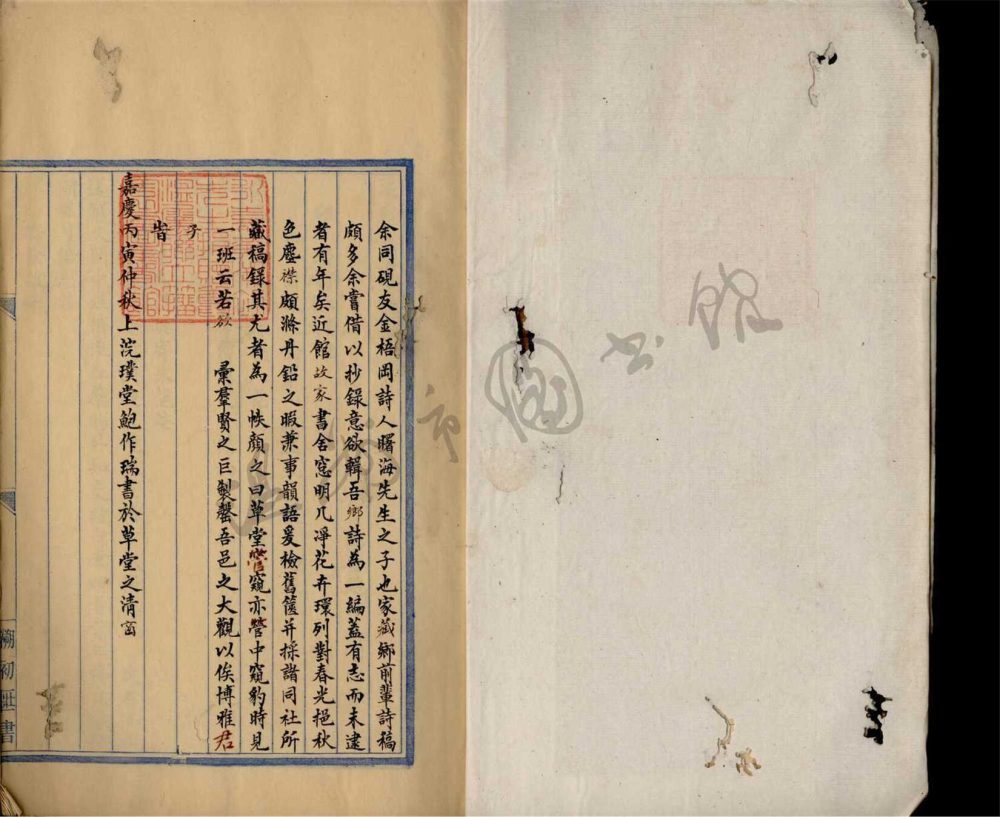 余同硯友金梧岡詩人曙海先生之子也家藏鄉前輩詩稿
頗多余嘗借以抄錄意欲輯吾鄉詩為一編蓋有志而未逮
者有年矣近館故家書舍窓明几凈花卉環列對春光挹秋
色塵襟頗滌丹鉛之暇兼事韻語爰檢舊篋并採諸同社所
藏稿錄其尤者為一帙顏之曰草堂管窺亦管中窺豹時見
一班云若欲彙羣賢之巨製罄吾邑之大觀以俟博雅君
子
旹
嘉慶丙寅仲秋上浣璞堂鮑作瑞書於草堂之清窗
市圖書館